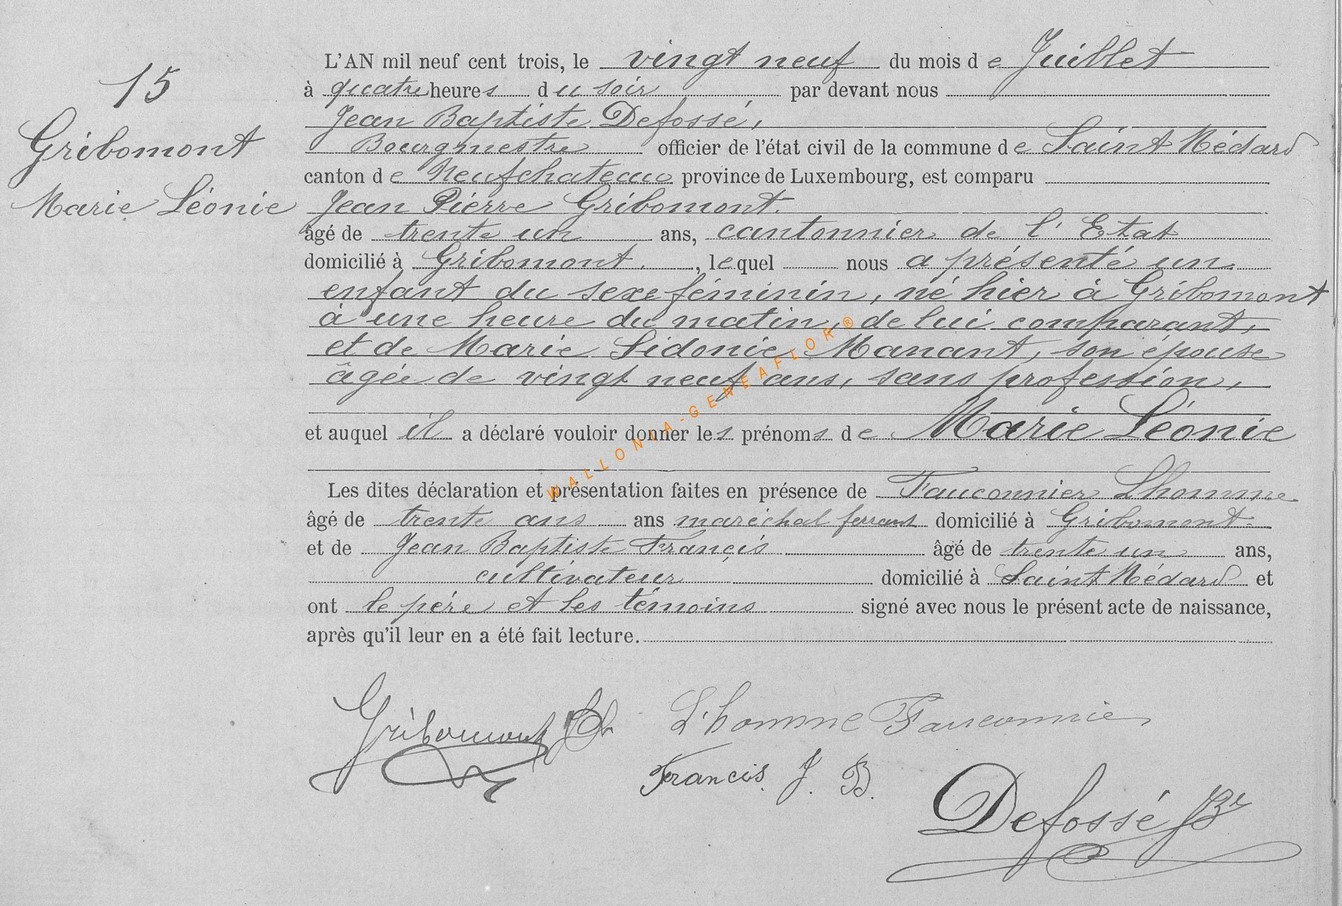 15
Gribomont
Marie Léonie
L'AN mil neuf cent trois, le vingt neuf du mois de Juillet
à quatre heures du soir par devant nous
Jean Baptiste Defossé,
Bourgmestre officier de l'état civil de la commune de Saint Médard
canton de Neufchateau province de Luxembourg, est comparu
Jean Pierre Gribomont.
âgé de trente un ans, cantonnier de l'Etat
domicilié à Gribomont, lequel nous a présenté un
enfant du sexe féminin, né hier à Gribomont
à une heure du matin, de lui comparant,
et de Marie Sidonie Manant, son épouse
âgée de vingt neuf ans, sans profession,
et auquel il a déclaré vouloir donner les prénoms de Marie Léonie
Les dites déclaration et présentation faites en présence de Fauconnier Lhomme
âgé de trente ans ans maréchal ferrant domicilié à Gribomont
et de Jean Baptiste Francis âgé de trente un ans,
cultivateur domicilié à Saint Médard et
ont le père et les témoins signé avec nous le présent acte de naissance,
après qu'il leur en a été fait lecture.
Gribomont
L'homme Fauconnie
Francis. J. B.
Defossé JB
WALLONIA-GENEAFLOR®